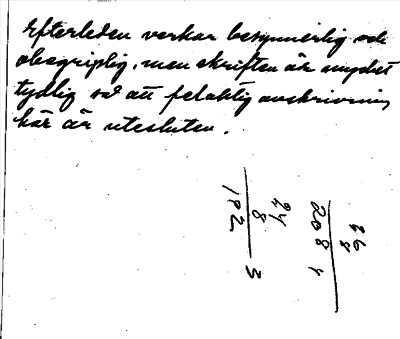 Efterleden verkar besynnerlig och
obegriplig, men skriften är mycket
tydlig så att felaktig avskrivning
här är utesluten.
26
8
208 4
24
8
192 3